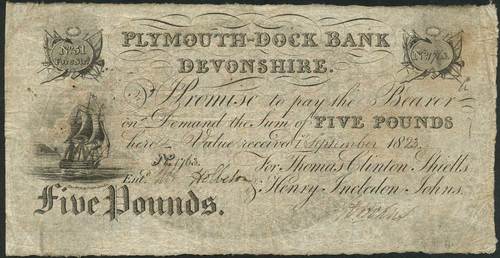 PLYMOUTH-DOCK BANK
DEVONSHIRE.
No. 1763
I Promise to pay the Bearer
on Demand the Sum of FIVE POUNDS
here Value received September 1823
No. 1763. For Thomas Clinton Shiells
Entd. Henry Incledon Johns.
Five Pounds.